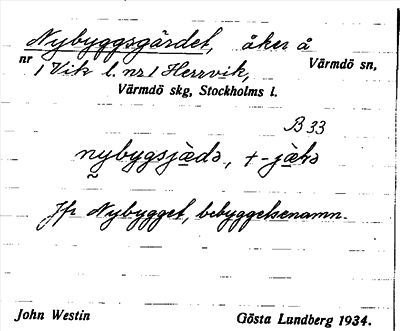 Nybyggsgärdet, åker å
nr 1 Vik l. nr 1 Herrvik, Värmdö sn,
Värmdö skg, Stockholms l.
B 33
nybygsjädə, +-jätə
Jfr Nybygget, bebyggelsenamn.
John Westin Gösta Lundberg 1934.